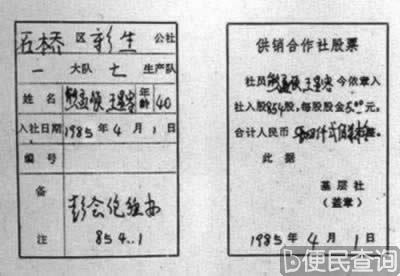 石桥区新生公社
一大队七生产队
姓名 王 年龄 40
入社日期 1985年4月1日
编号
备注
85 4..1
供销合作社股票
社员 王 今依章入
社入股854股，每股股金5.00元，
合计人民币
此据
基层社
（盖章）
1985年4月1日
b便民查询